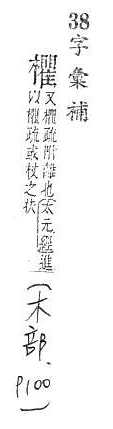 38字彙補
欋
又欋疏附離也太元經進
以欋疏或杖之扶
(木部、P100)